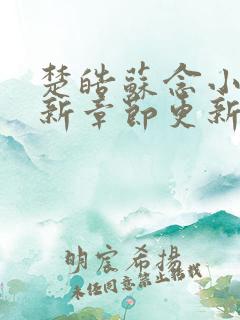 楚皓蘇念小
新章節更新
明宸希揚
未經同意禁止轉載